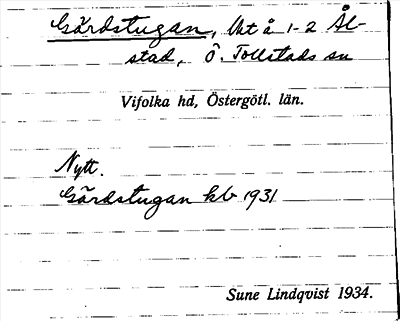 Gärdstugan, Ukt å 1-2 Ål-
stad, Ö. Tollstads sn
Vifolka hd, Östergötl. län.
Nytt.
Gärdstugan kb 1931
Sune Lindqvist 1934.